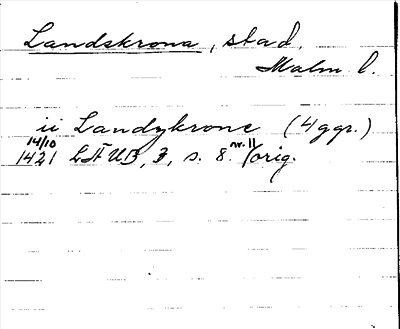 Landskrona, stad.
Malm l.
ii Landzkrone (4 ggr.)
14/10 1421 LÄUB, 3, s. 8. nr. 11 /orig.